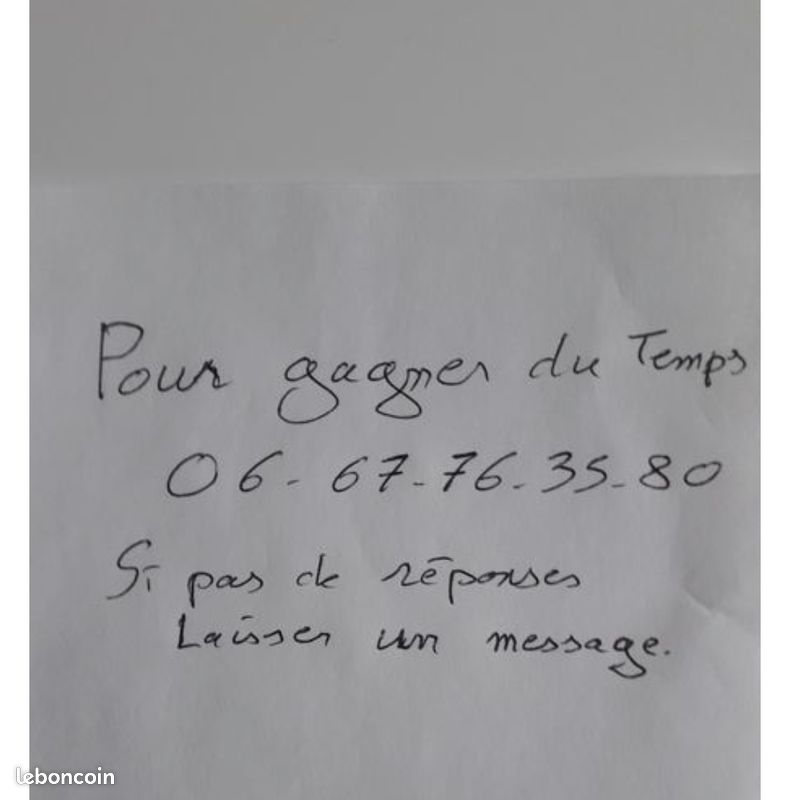 Pour gagner du Temps
06-67-76-35-80
Si pas de réponses
Laisser un message.
leboncoin